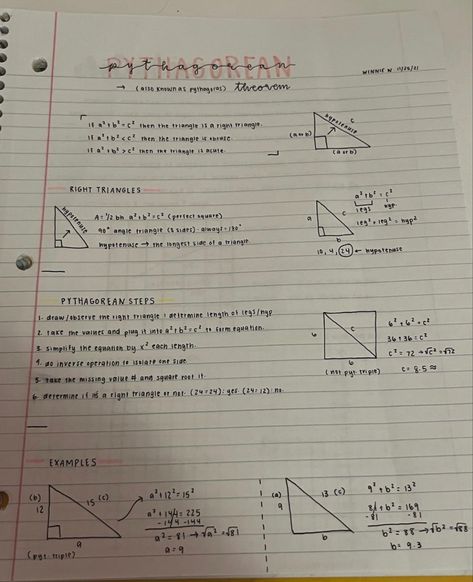 PYTHAGOREAN
pythagorean
WINNIE N 11/28/21
→ (also known as pythagoras) theorem
If a² + b² = c² then the triangle is a right triangle.
If a² + b² < c² then the triangle is obtuse.
If a² + b² > c² then the triangle is acute.
hypotenuse
c
(a or b)
(a or b)
RIGHT TRIANGLES
hypotenuse
A = ½ bh a² + b² = c² (perfect square)
90° angle triangle (3 sides) - always = 180°
hypotenuse → the longest side of a triangle.
a
c
b
a² + b² = c²
legs hyp
leg² + leg² = hyp²
10, 4, 24 ← hypotenuse
PYTHAGOREAN STEPS
1. draw/observe the right triangle & determine length of legs/hyp
2. take the values and plug it into a² + b² = c² to form equation.
3. simplify the equation by x² each length.
4. do inverse operation to isolate one side
5. take the missing value # and square root it.
6. determine if it's a right triangle or not. (24=24): yes (24=12): no.
6
c
6
(not pyt. triple)
6² + 6² = c²
36 + 36 = c²
c² = 72 → √c² = √72
c = 8.5 ≈
EXAMPLES
(b)
12
15 (c)
9
(pyt. triple)
a² + 12² = 15²
a² + 144 = 225
-144 -144
a² = 81 → √a² = √81
a = 9
(a)
9
13 (c)
b
9² + b² = 13²
81 + b² = 169
-81 -81
b² = 88 → √b² = √88
b = 9.3